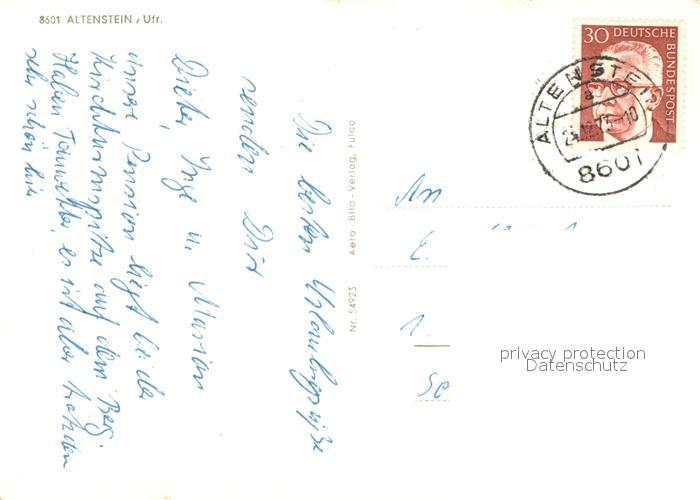 8601 ALTENSTEIN / Ufr.
30 DEUTSCHE
BUNDESPOST
ALTENSTEIN
a
73-10
8601
Die besten Urlaubsgrüße
senden Dir
Dieter, Inge u. Marion
unsere Pension liegt bei der
Kirchturmspitze auf dem Berg.
Haben Tauwetter, es ist aber trotzdem
sehr schön hier
Aero-Bild-Verlag, Fulda
Nr. 54923
An
privacy protection
Datenschutz